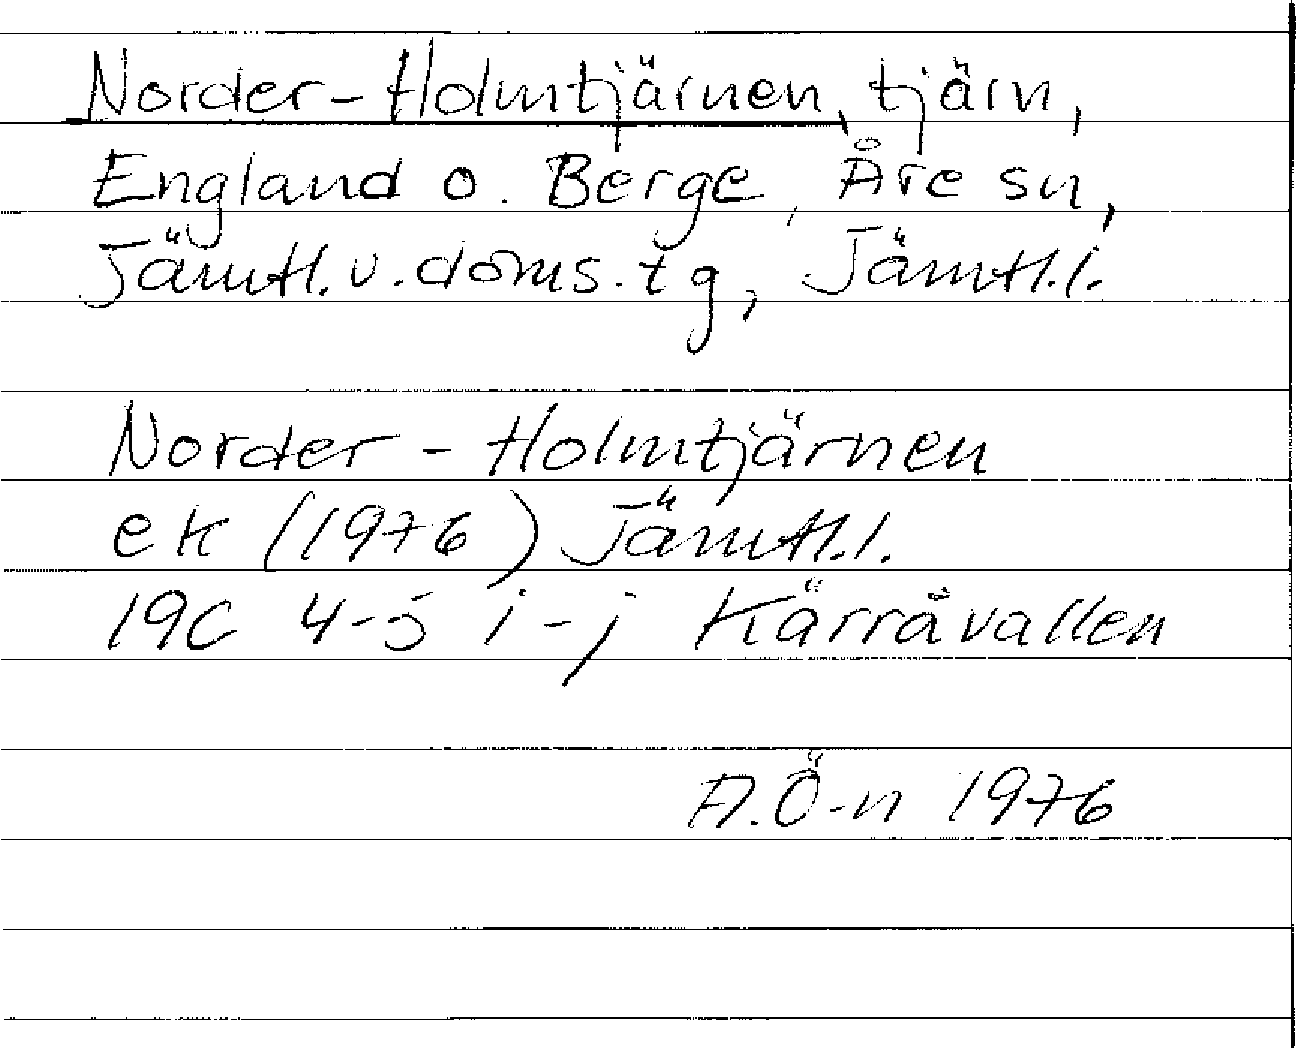 Norder-Holmtjärnen, tjärn,
England o. Berge, Åre sn,
Jämtl. v. doms. tg, Jämtl. l.
Norder-Holmtjärnen
ek (1976) Jämtl. l.
19C 4-5 i-j Kärråvallen
A. Ö-n 1976